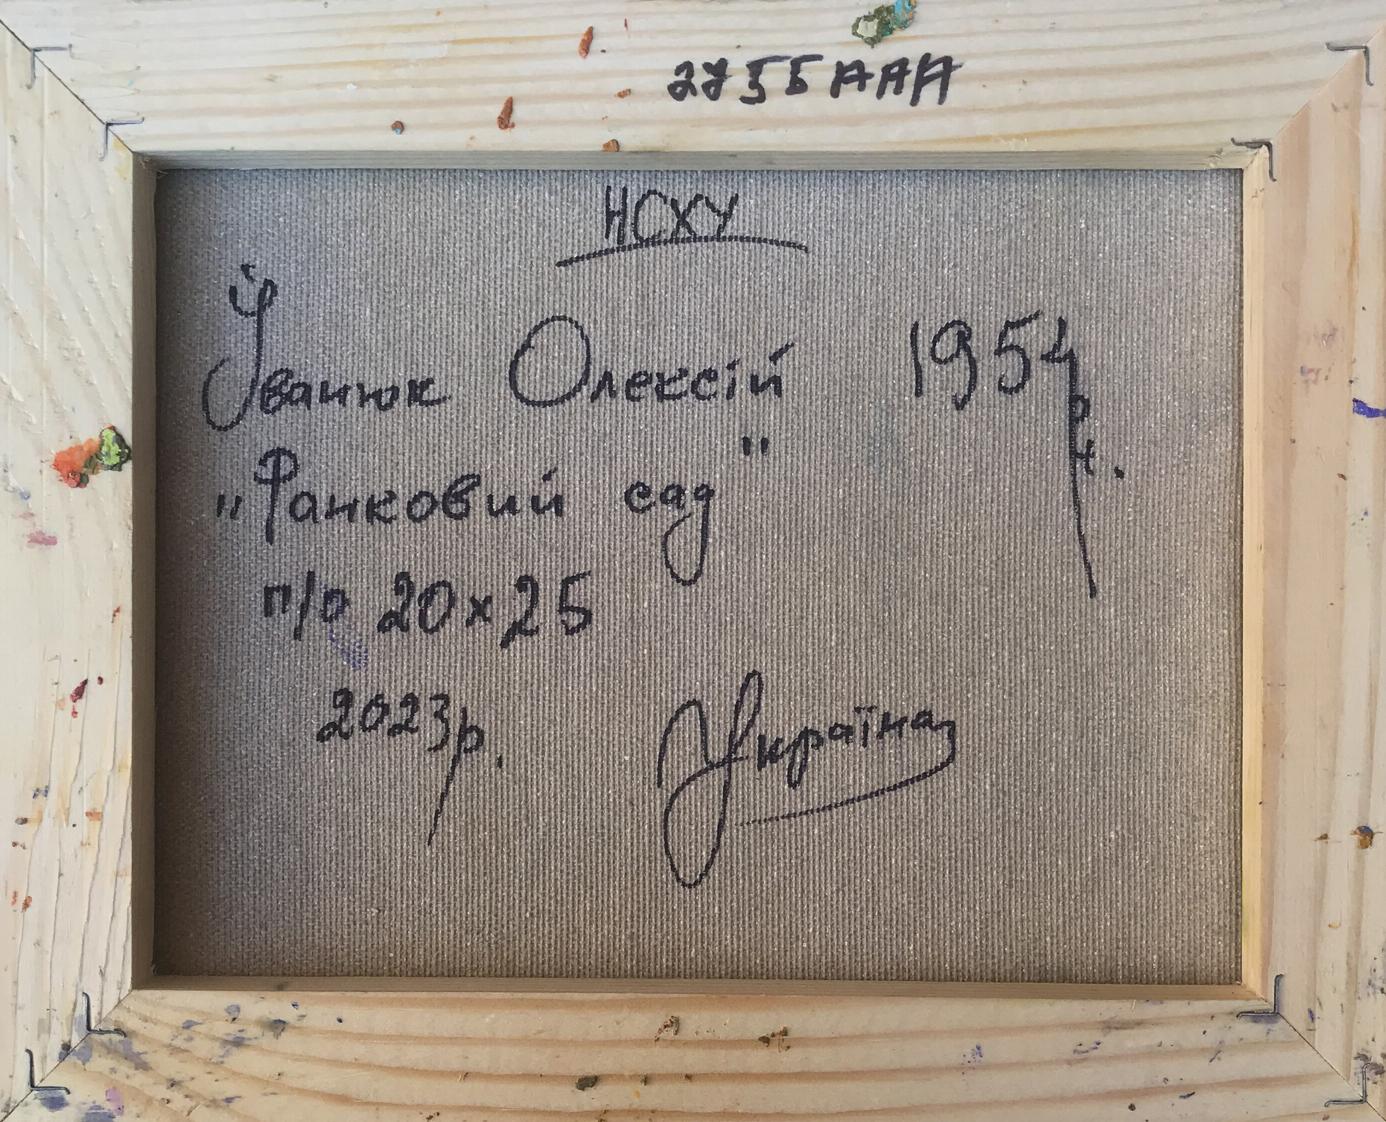 2755AAA
НСХУ
Іванюк Олексій 1954 р.н.
"Ранковий сад"
п/о 20х25
2023р.
Україна